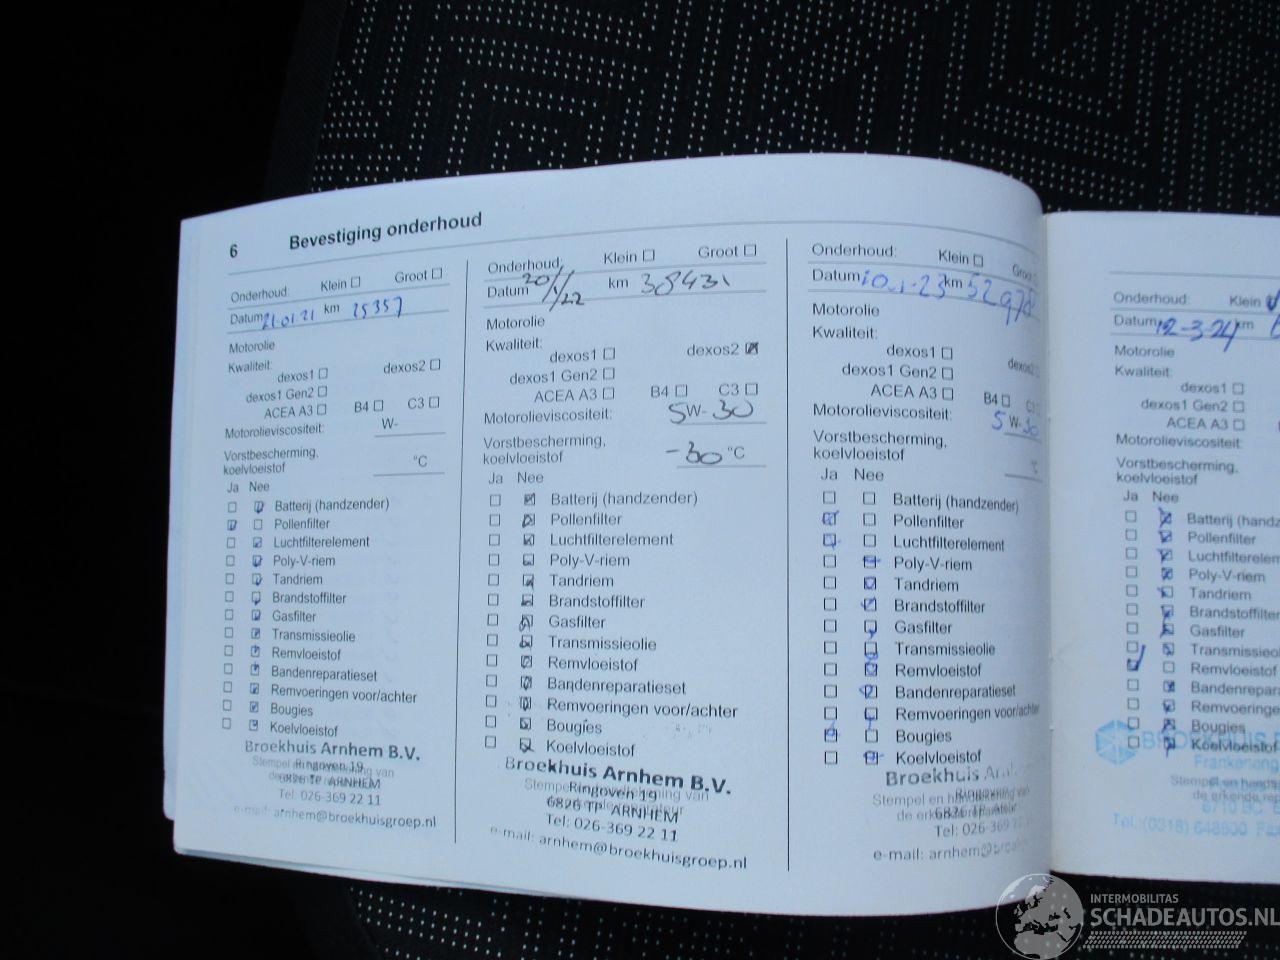 6 Bevestiging onderhoud
Onderhoud: Klein ☐ Groot ☐
Datum 21.01.21 km 25357
Motorolie
Kwaliteit:
dexos1 ☐ dexos2 ☐
dexos1 Gen2 ☐
ACEA A3 ☐ B4 ☐ C3 ☐
Motorolieviscositeit: W-
Vorstbescherming,
koelvloeistof °C
Ja Nee
Batterij (handzender)
Pollenfilter
Luchtfilterelement
Poly-V-riem
Tandriem
Brandstoffilter
Gasfilter
Transmissieolie
Remvloeistof
Bandenreparatieset
Remvoeringen voor/achter
Bougies
Koelvloeistof
Broekhuis Arnhem B.V.
Ringoven 19
6826 TP ARNHEM
Tel: 026-369 22 11
e-mail: arnhem@broekhuisgroep.nl
Onderhoud: Klein ☐ Groot ☐
Datum 20/1/22 km 38431
Motorolie
Kwaliteit:
dexos1 ☐ dexos2 ☒
dexos1 Gen2 ☐
ACEA A3 ☐ B4 ☐ C3 ☐
Motorolieviscositeit: 5W-30
Vorstbescherming,
koelvloeistof -30 °C
Ja Nee
Batterij (handzender)
Pollenfilter
Luchtfilterelement
Poly-V-riem
Tandriem
Brandstoffilter
Gasfilter
Transmissieolie
Remvloeistof
Bandenreparatieset
Remvoeringen voor/achter
Bougies
Koelvloeistof
Broekhuis Arnhem B.V.
Stempel en handtekening van
Ringoven 19
de erkende reparateur
6826 TP ARNHEM
Tel: 026-369 22 11
e-mail: arnhem@broekhuisgroep.nl
Onderhoud: Klein ☐ Groot
Datum 10-1-23 km 52978
Motorolie
Kwaliteit:
dexos1 ☐ dexos2
dexos1 Gen2 ☐
ACEA A3 ☐ B4 ☐ C3
Motorolieviscositeit: 5W-30
Vorstbescherming,
koelvloeistof °C
Ja Nee
Batterij (handzender)
Pollenfilter
Luchtfilterelement
Poly-V-riem
Tandriem
Brandstoffilter
Gasfilter
Transmissieolie
Remvloeistof
Bandenreparatieset
Remvoeringen voor/achter
Bougies
Koelvloeistof
Broekhuis
Stempel en handtekening van
Ringoven
de erkende reparateur
6826 TP
Tel: 026-369
e-mail: arnhem@
Onderhoud: Klein
Datum 12-3-24 km
Motorolie
Kwaliteit:
dexos1 ☐
dexos1 Gen2 ☐
ACEA A3 ☐
Motorolieviscositeit:
Vorstbescherming,
koelvloeistof
Ja Nee
Batterij
Pollenfilter
Luchtfilterelem
Poly-V-riem
Tandriem
Brandstoffilter
Gasfilter
Transmissieo
Remvloeistof
Bandenrepara
Remvoeringe
Bougies
Koelvloeistof
BROEKHUIS
Frankeneng
Stempel en
de erkende
Tel.:(0318) 648500
INTERMOBILITAS
SCHADEAUTOS.NL